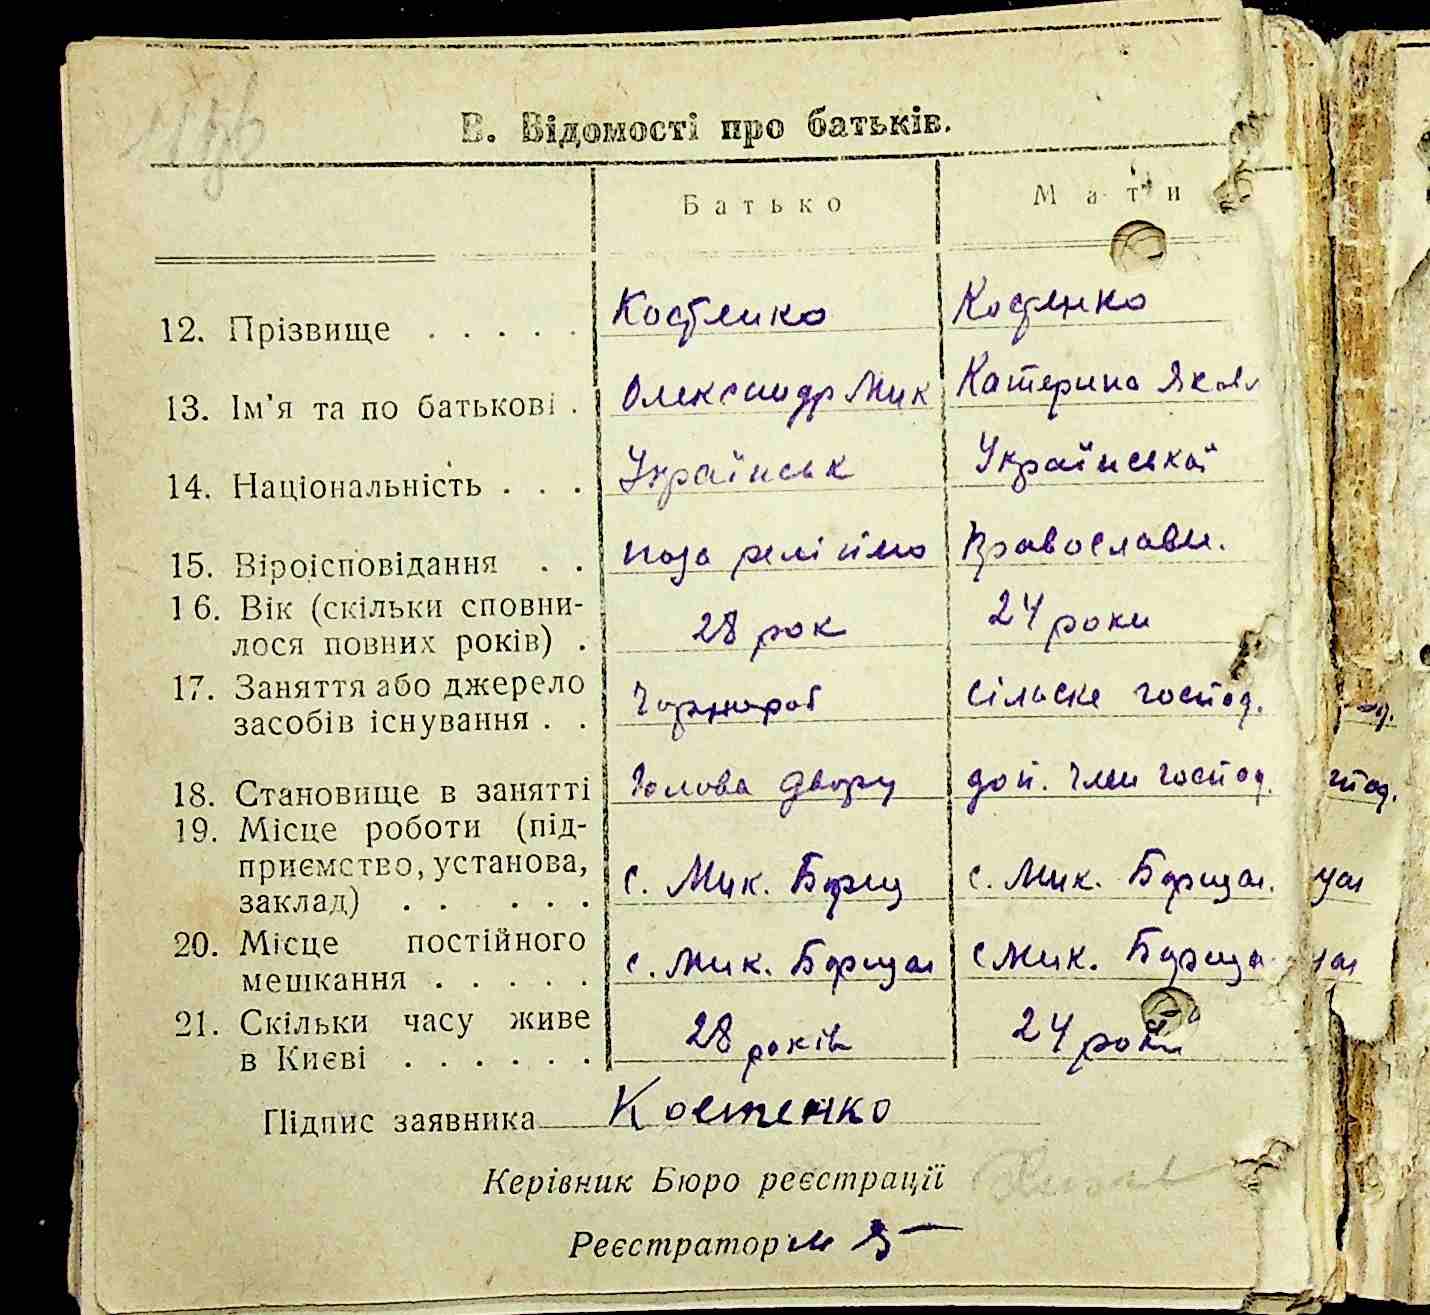 В. Відомості про батьків.
Батько Мати
12. Прізвище . . . . . Костенко Костенко
13. Ім'я та по батькові . Олександр Мик Катерина Яковл
14. Національність . . . Українськ Української
15. Віроісповідання . . поза релігійно Православн.
16. Вік (скільки сповни-
лося повних років) . 28 рок 24 роки
17. Заняття або джерело
засобів існування . . Чорнороб сільське господ.
18. Становище в занятті Голова двору доп. член господ.
19. Місце роботи (під-
приємство, установа,
заклад) . . . . . с. Мик. Борщ с. Мик. Борщаг.
20. Місце постійного
мешкання . . . . . с. Мик. Борщаг с Мик. Борщаг
21. Скільки часу живе
в Києві . . . . . . 28 років 24 роки
Підпис заявника Костенко
Керівник Бюро реєстрації
Реєстратор